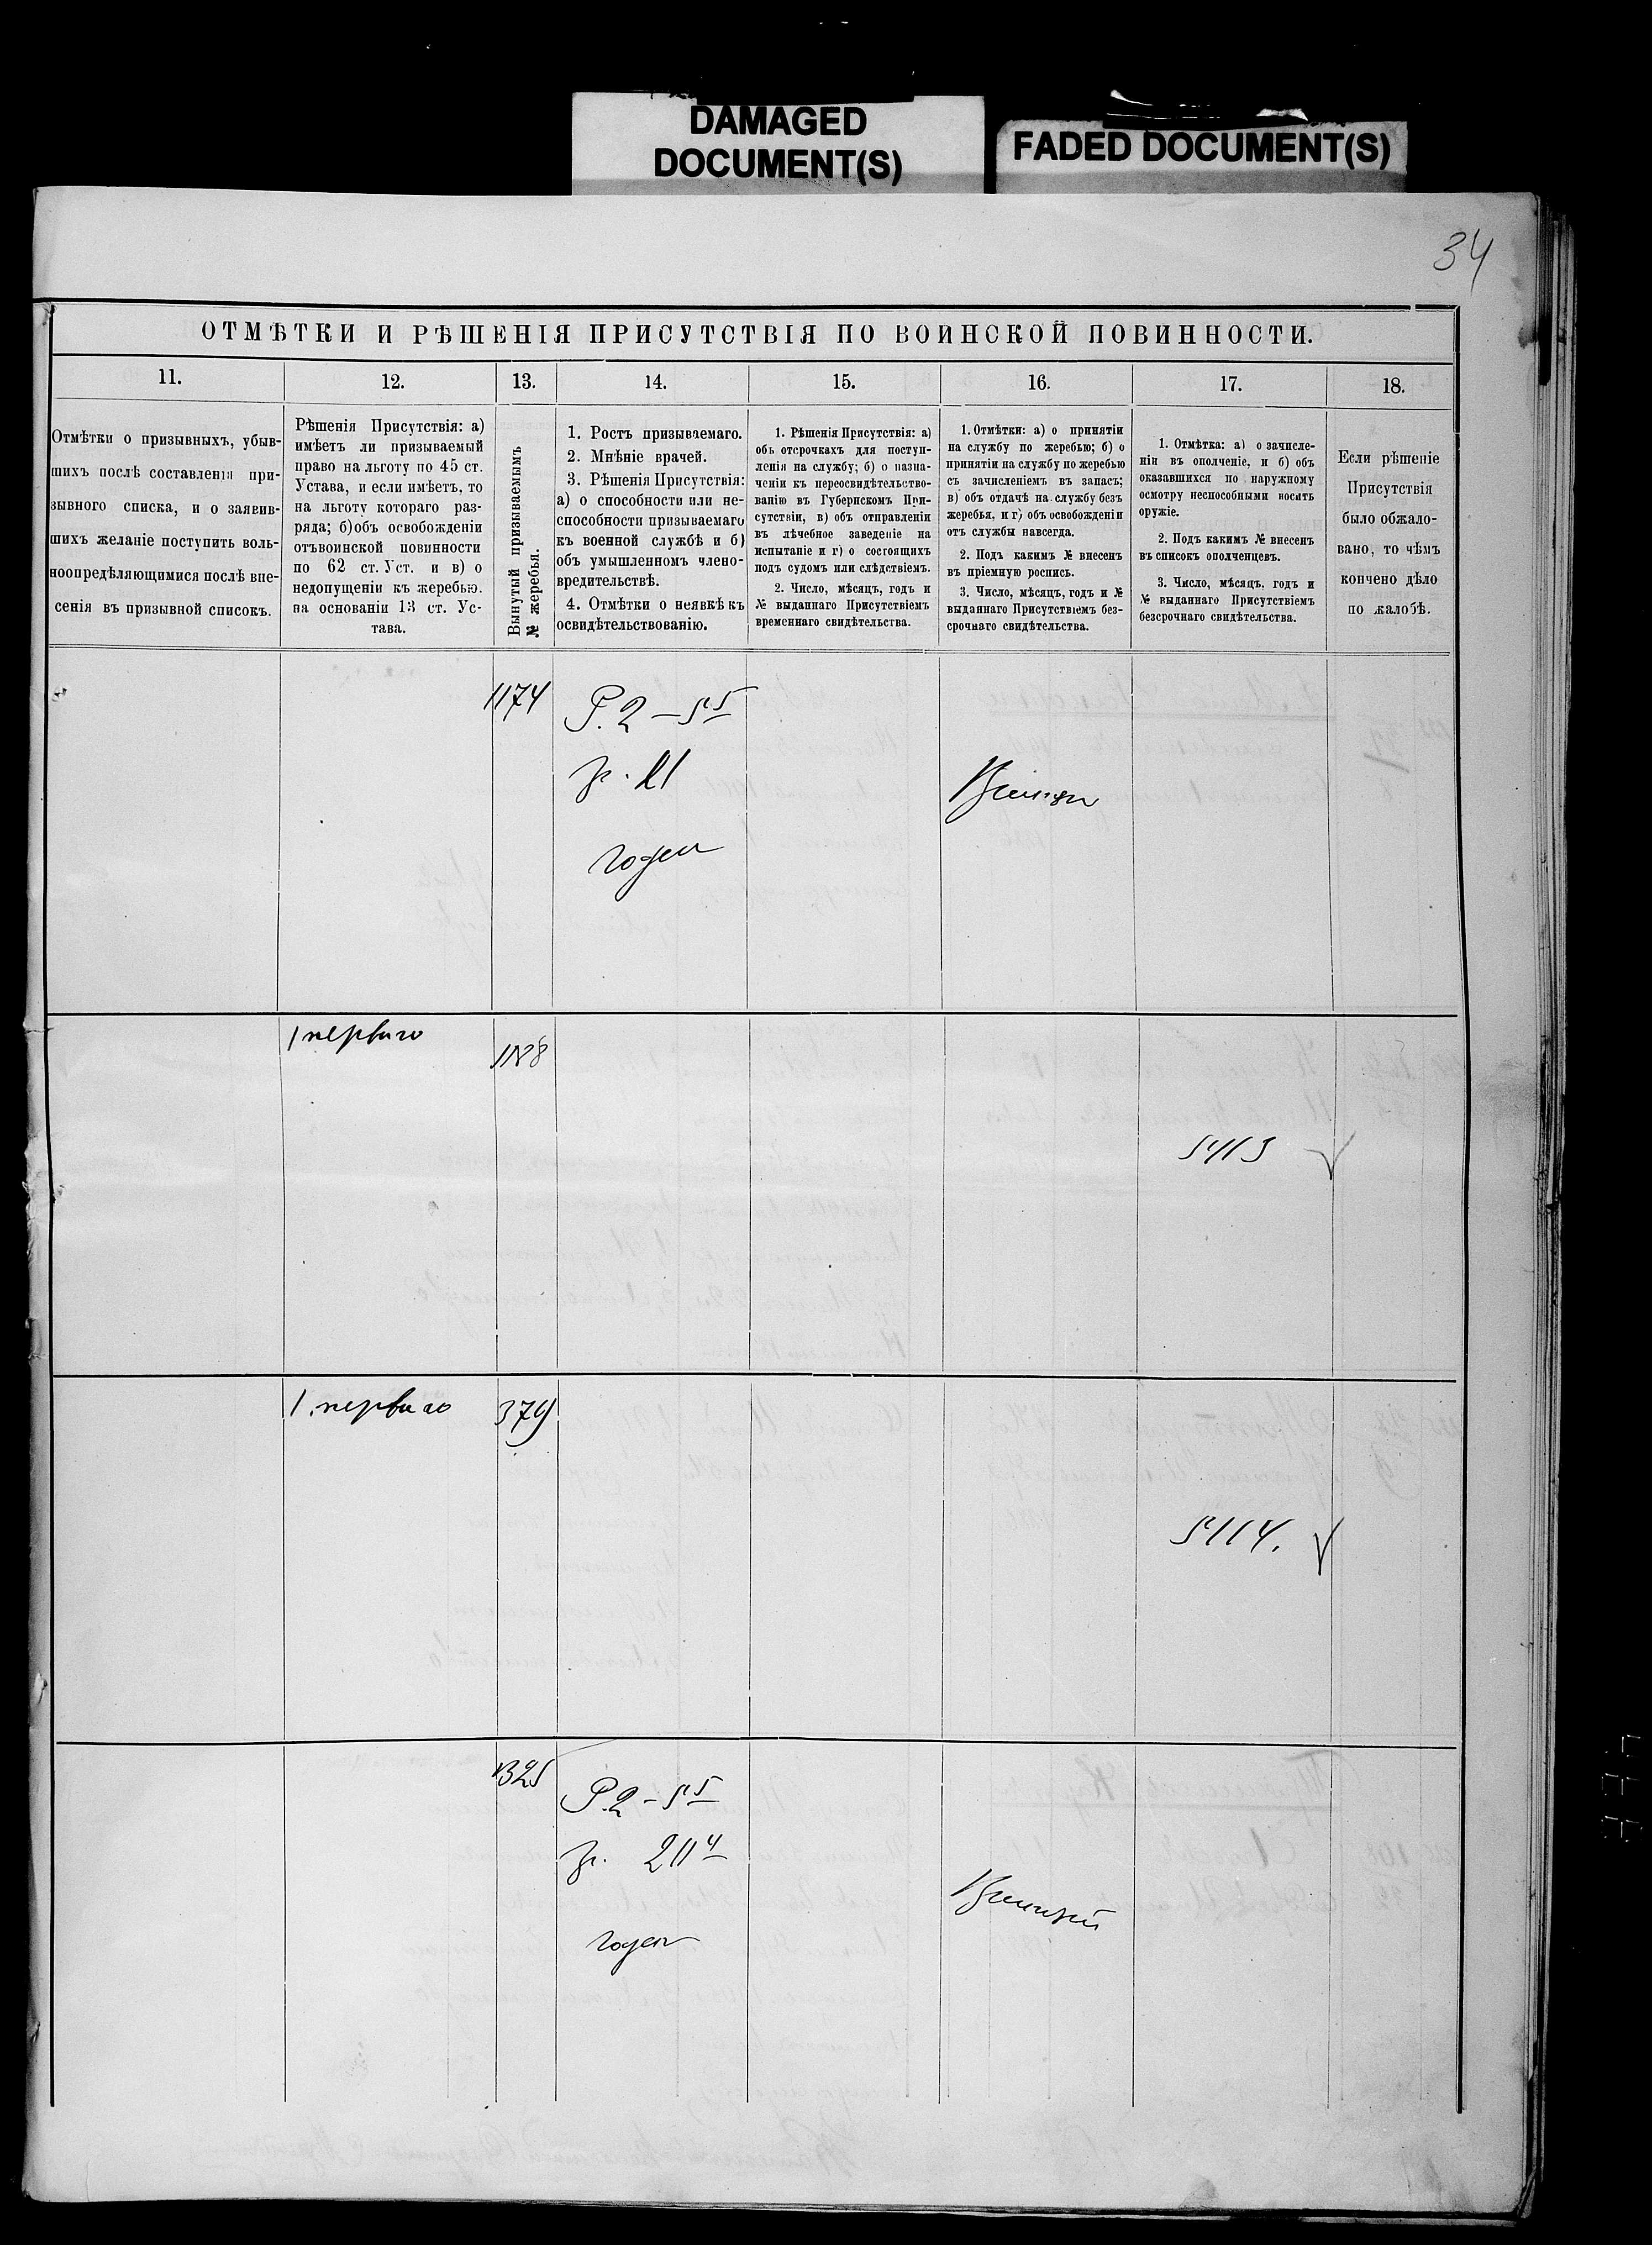 DAMAGED
DOCUMENT(S)
FADED DOCUMENT(S)
34
ОТМѢТКИ И РѢШЕНІЯ ПРИСУТСТВІЯ ПО ВОИНСКОЙ ПОВИННОСТИ.
11.
Отмѣтки о призывныхъ, убыв-
шихъ послѣ составленія при-
зывного списка, и о заявив-
шихъ желаніе поступить воль-
ноопредѣляющимися послѣ вне-
сенія въ призывной списокъ.
12.
Рѣшенія Присутствія: а)
имѣетъ ли призываемый
право на льготу по 45 ст.
Устава, и если имѣетъ, то
на льготу котораго раз-
ряда; б) объ освобожденіи
отъ воинской повинности
по 62 ст. Уст. и в) о
недопущеніи къ жеребью.
на основаніи 13 ст. Ус-
тава.
13.
Вынутый призываемымъ
№ жеребья.
14.
1. Ростъ призываемаго.
2. Мнѣніе врачей.
3. Рѣшенія Присутствія:
а) о способности или не-
способности призываемаго
къ военной службѣ и б)
объ умышленномъ члено-
вредительствѣ.
4. Отмѣтки о неявкѣ къ
освидѣтельствованію.
15.
1. Рѣшенія Присутствія: а)
объ отсрочкахъ для поступ-
ленія на службу; б) о назна-
ченіи къ переосвидѣтельство-
ванію въ Губернскомъ При-
сутствіи, в) объ отправленіи
въ лѣчебное заведеніе на
испытаніе и г) о состоящихъ
подъ судомъ или слѣдствіемъ.
2. Число, мѣсяцъ, годъ и
№ выданнаго Присутствіемъ
временнаго свидѣтельства.
16.
1. Отмѣтки: а) о принятіи
на службу по жеребью; б) о
принятіи на службу по жеребью
съ зачисленіемъ въ запасъ;
в) объ отдачѣ на службу безъ
жеребья, и г) объ освобожденіи
отъ службы навсегда.
2. Подъ какимъ № внесенъ
въ пріемную роспись.
3. Число, мѣсяцъ, годъ и №
выданнаго Присутствіемъ без-
срочнаго свидѣтельства.
17.
1. Отмѣтка: а) о зачисле-
ніи въ ополченіе, и б) объ
оказавшихся по наружному
осмотру неспособными носить
оружіе.
2. Подъ какимъ № внесенъ
въ списокъ ополченцевъ.
3. Число, мѣсяцъ, годъ и
№ выданнаго Присутствіемъ
безсрочнаго свидѣтельства.
18.
Если рѣшеніе
Присутствія
было обжало-
вано, то чѣмъ
кончено дѣло
по жалобѣ.
1174
Р. 2 – 5 5
гр. 21
годен
1 перваго
1188
5113
1. перваго
379
5114.
1325
Р. 2 – 5 5
гр. 21 4
годен